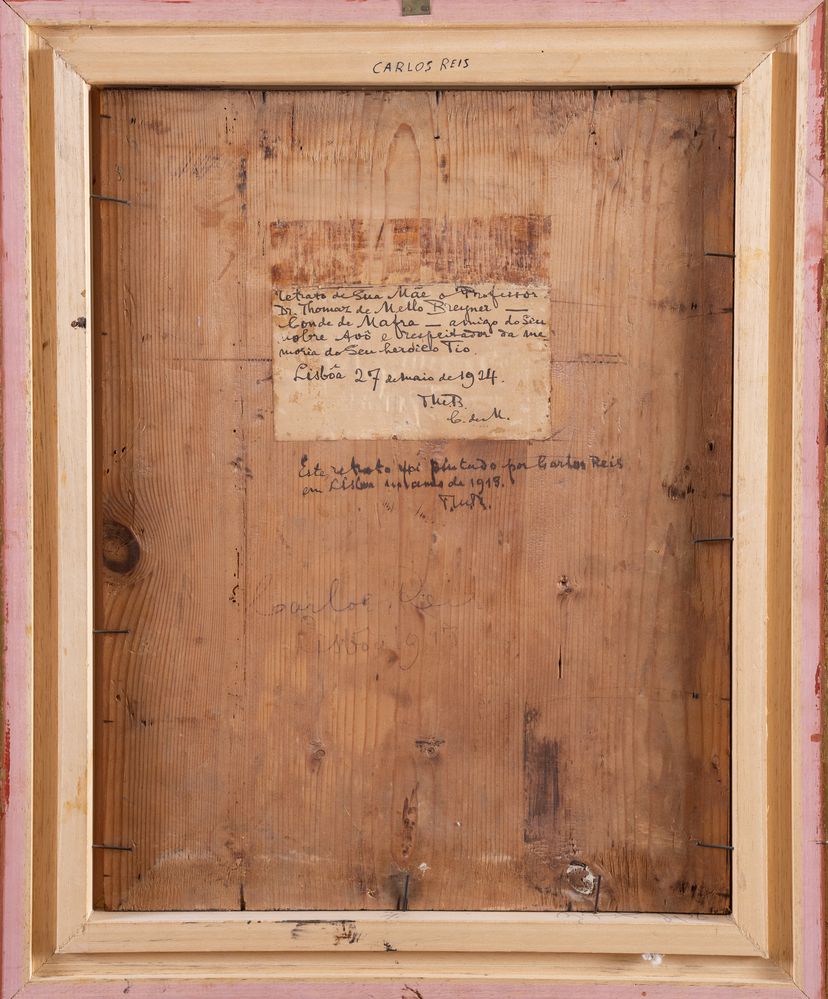 CARLOS REIS
retrato de Sua Mãe o Professor
Dr. Thomaz de Mello Breyner —
Conde de Mafra — amigo do Seu
nobre Avô e respeitador da me
moria do Seu heroico Tio.
Lisbôa 27 de maio de 1924.
T.M.B.
C. de M.
Este retrato foi pintado por Carlos Reis
em Lisboa no anno de 1918.
T.M.B.
Carlos Reis
Lisboa